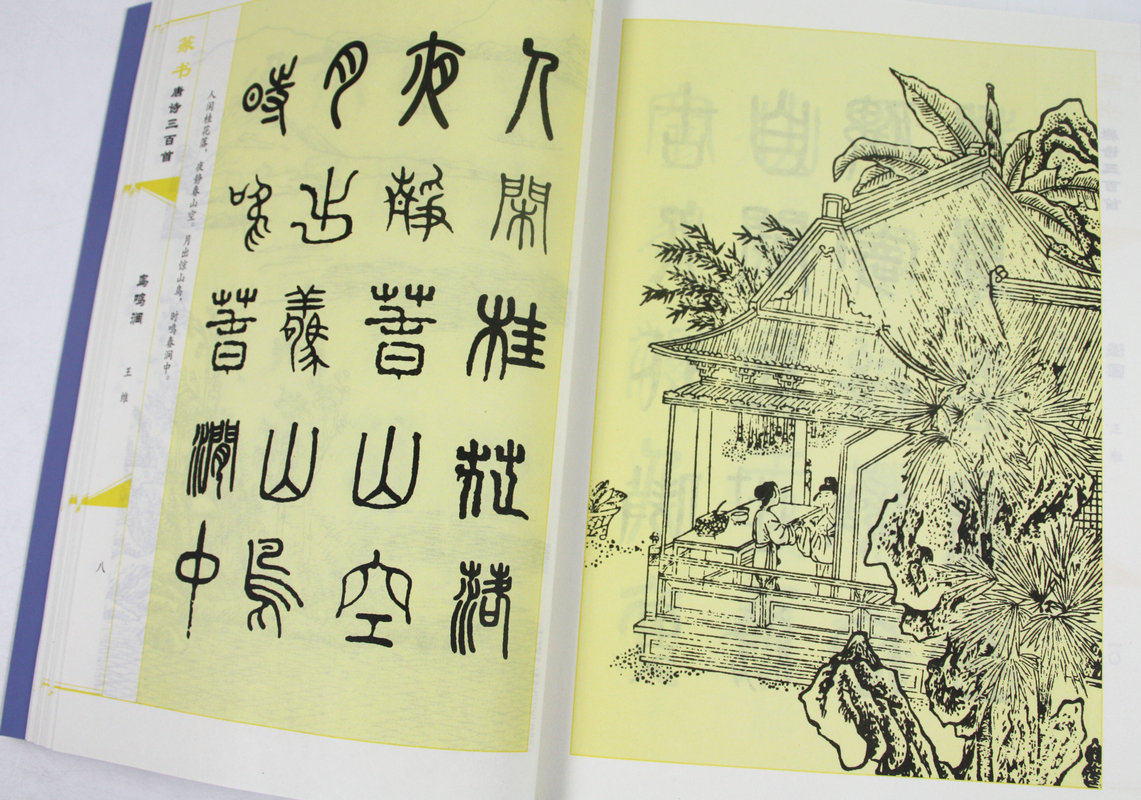 人閑桂花落
夜靜春山空
月出驚山鳥
時鳴春澗中
人闲桂花落，夜静春山空。月出惊山鸟，时鸣春涧中。
篆书唐诗三百首
鸟鸣涧
王维
八